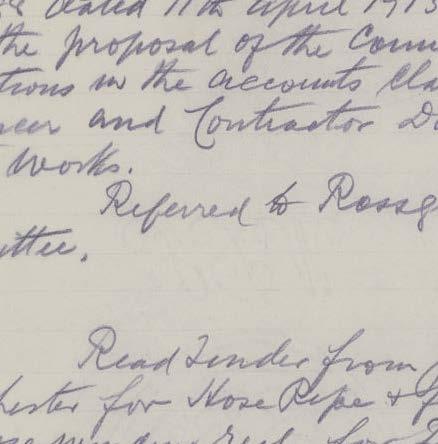 dated 11th April 191
the proposal of the Coun
tions in the accounts Cla
neer and Contractor D
Works.
Referred to Rossg
ittee.
Read Tender from
hester for Hose Pipe + f